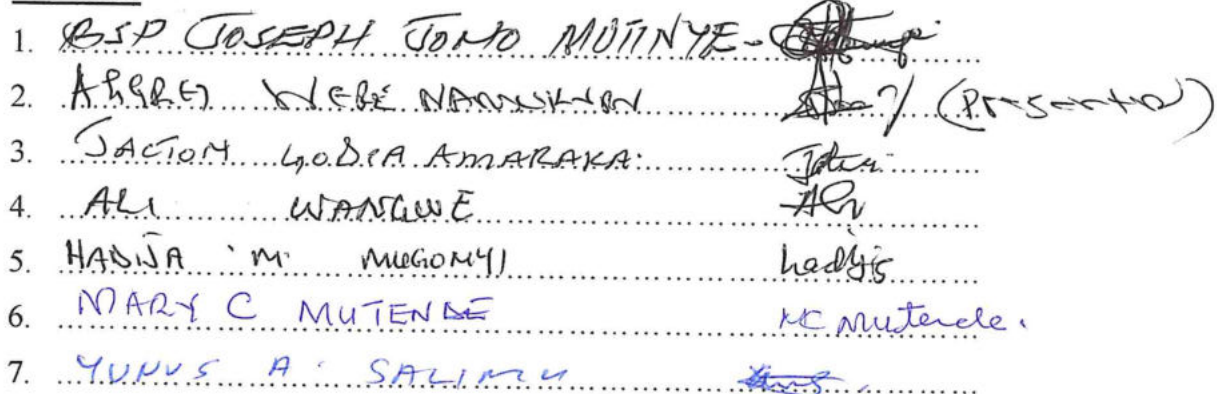 1. BSP JOSEPH JOMO MUTINYE -
2. WERE (Presenter)
3. JACTON GODIA AMARAKA:
4. ALI WANGWE Ali
5. HADIJA M. MUGONYI hadija
6. MARY C MUTENDE MC Mutende.
7. YUNUS A. SALIMU